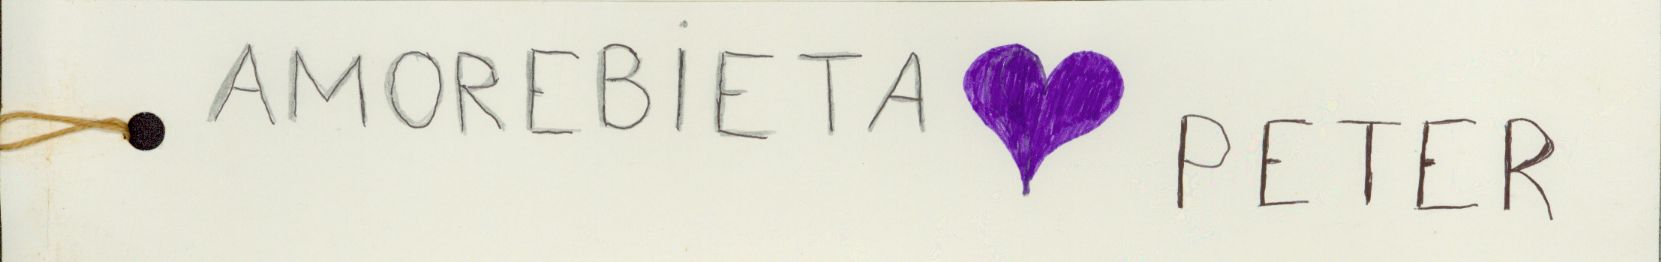 AMOREBiETA
PETER